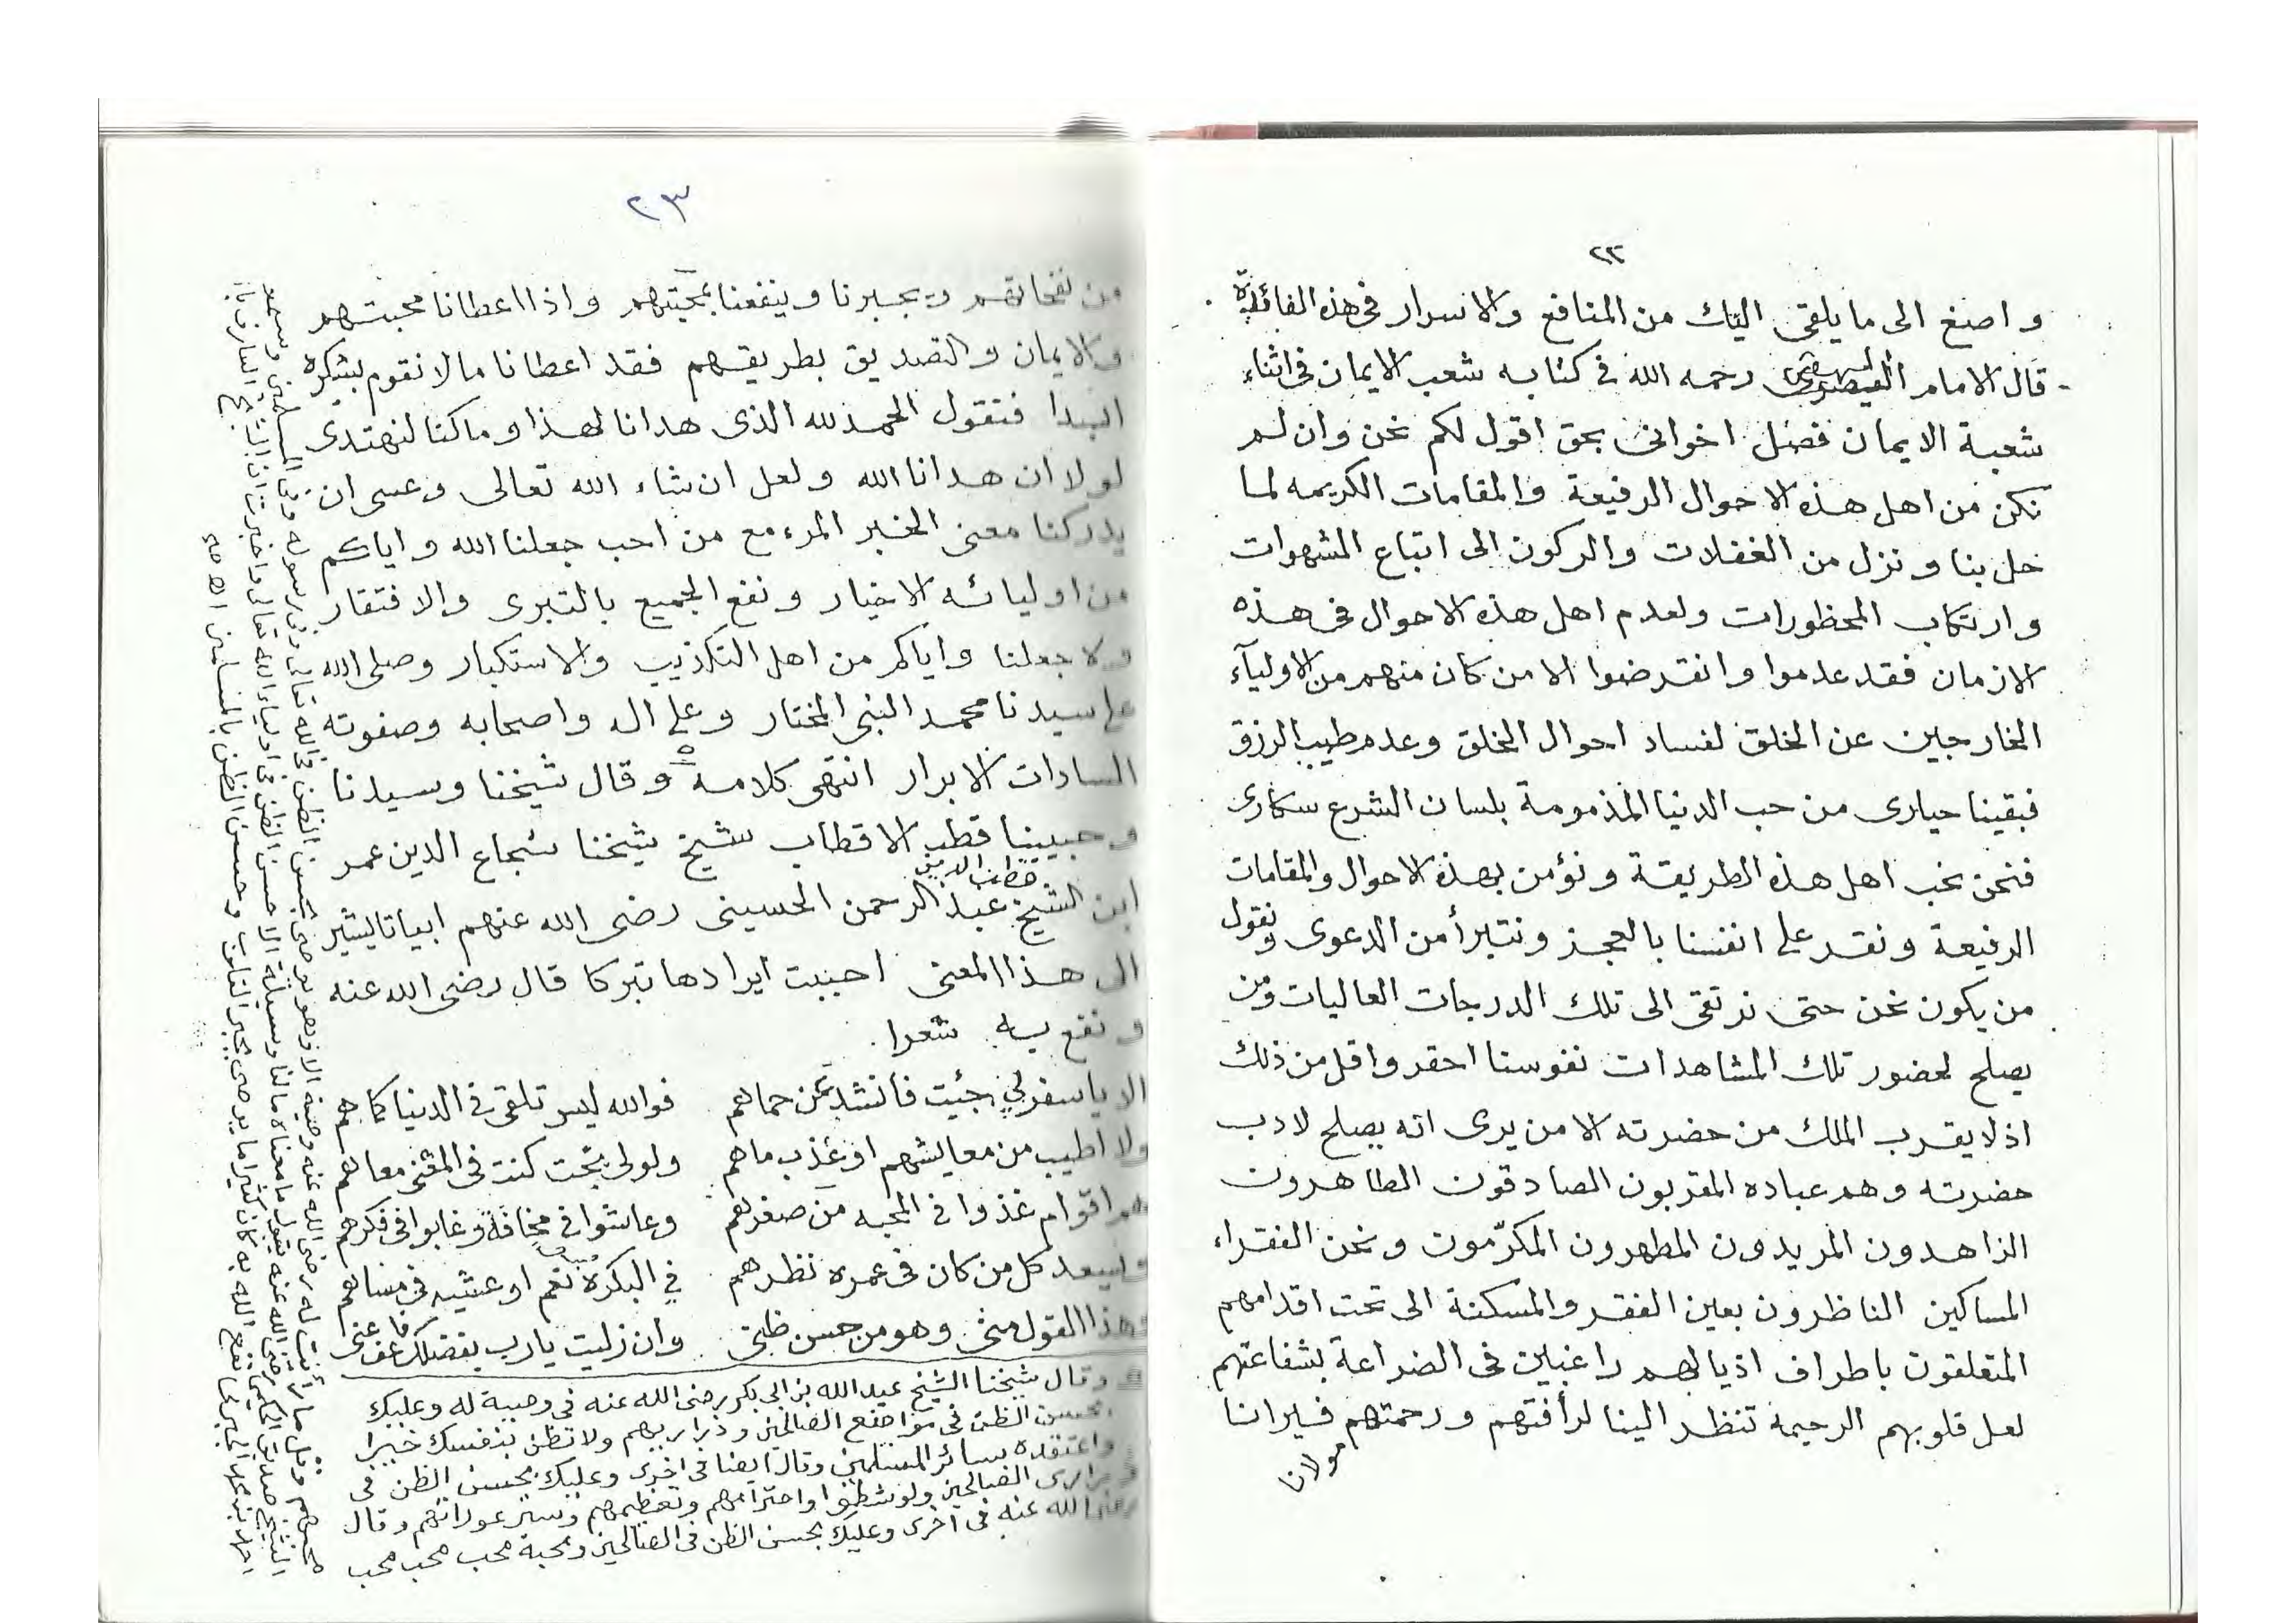 ٢٢
و اصغ الى ما يلقى اليك من المنافع والاسرار فى هذه الفائدة
قال الامام رحمه الله فى كتابه شعب الايمان فى اثناء
شعبة الايمان فصل اخوانى بحق اقول لكم نحن وان لم
نكن من اهل هذه الاحوال الرفيعة والمقامات الكريمه لما
حل بنا و نزل من الغفلات والركون الى اتباع الشهوات
و ارتكاب المحظورات ولعدم اهل هذه الاحوال فى هذه
الازمان فقد عدموا وانقرضوا الا من كان منهم من الاوليآء
الخارجين عن الخلق لفساد احوال الخلق وعدم طيب الرزق
فبقينا حيارى من حب الدنيا المذمومة بلسان الشرع سكارى
فنحن نحب اهل هذه الطريقة ونؤمن بهذه الاحوال والمقامات
الرفيعة ونقر على انفسنا بالعجز ونتبرأ من الدعوى ونقول
من يكون نحن حتى نرتقى الى تلك الدرجات العاليات ومن
يصلح لحضور تلك المشاهدات نفوسنا احقر واقل من ذلك
اذ لا يقرب الملك من حضرته الا من يرى انه يصلح لادب
حضرته وهم عباده المقربون الصادقون الطاهرون
الزاهدون المريدون المطهرون المكرّمون ونحن الفقراء
المساكين الناظرون بعين الفقر والمسكنة الى تحت اقدامهم
المتعلقون باطراف اذيالهم راغبين فى الضراعة بشفاعتهم
لعل قلوبهم الرحيمة تنظر الينا لرأفتهم ورحمتهم
مولانا
٢٣
من نفحاتهم ويجبرنا وينفعنا بمحبتهم واذا اعطانا محبتهم
والايمان والتصديق بطريقهم فقد اعطانا ما لا نقوم بشكره
ابدا فنقول الحمد لله الذى هدانا لهذا وما كنا لنهتدى
لولا ان هدانا الله ولعل ان شاء الله تعالى وعسى ان
يدركنا معنى الخبر المرء مع من احب جعلنا الله واياكم
من اوليائه الاخيار ونفع الجميع بالتبرى والافتقار
ولا جعلنا واياكم من اهل التكذيب والاستكبار وصلى الله
على سيدنا محمد النبى المختار وعلى اله واصحابه وصفوته
السادات الابرار انتهى كلامه وقال شيخنا وسيدنا
وحبيبنا قطب الاقطاب شيخ شيخنا شجاع الدين عمر
قطب الدين
ابن الشيخ عبد الرحمن الحسينى رضى الله عنهم ابياتا يشير
الى هذا المعنى احببت ايرادها تبركا قال رضى الله عنه
ونفع به شعرا .
الا يا سفر لى جئت فانشد عن حماهم فوالله ليس تلقى فى الدنيا كما هم
ولا اطيب من معايشهم او عذب ماهم ولو لى بخت كنت فى المغنى معاهم
هم اقوام غذوا فى المحبه من صغرهم وعاشوا فى مخافة وغابوا فى فكرهم
ويسعد كل من كان فى عمره نظرهم فى البكرة نعم او عشيه فى مساهم
وهذا القول منى وهو من حسن ظنى وان زليت يا رب بفضلك فاعف عنى
وقال شيخنا الشيخ عبد الله بن ابى بكر رضى الله عنه فى وصية له وعليك
بحسن الظن فى مواضع الصالحين وذراريهم ولا تظن بنفسك خيرا
واعتقده سائر المسلمين وقال ايضا فى اخرى وعليك بحسن الظن فى
ذرارى الصالحين ولو شطوا واحترامهم وتعظيمهم وستر عوراتهم وقال
رضى الله عنه فى اخرى وعليك بحسن الظن فى الصالحين ومحبة محب محب محب
محبهم وقل ما رأيت له رضى الله عنه وصية الا وهو يوصى بحسن الظن فى الله تعالى وفى رسوله وفى المسلمين
الشيخ رضى الله عنه يقول ما معناه ما لنا وسيلة الا حسن الظن فى اولياء الله تعالى واخبرت ان
نفع الله به كان كثيرا ما يوصى بجبر القلوب وحسن الظن بالمسلمين